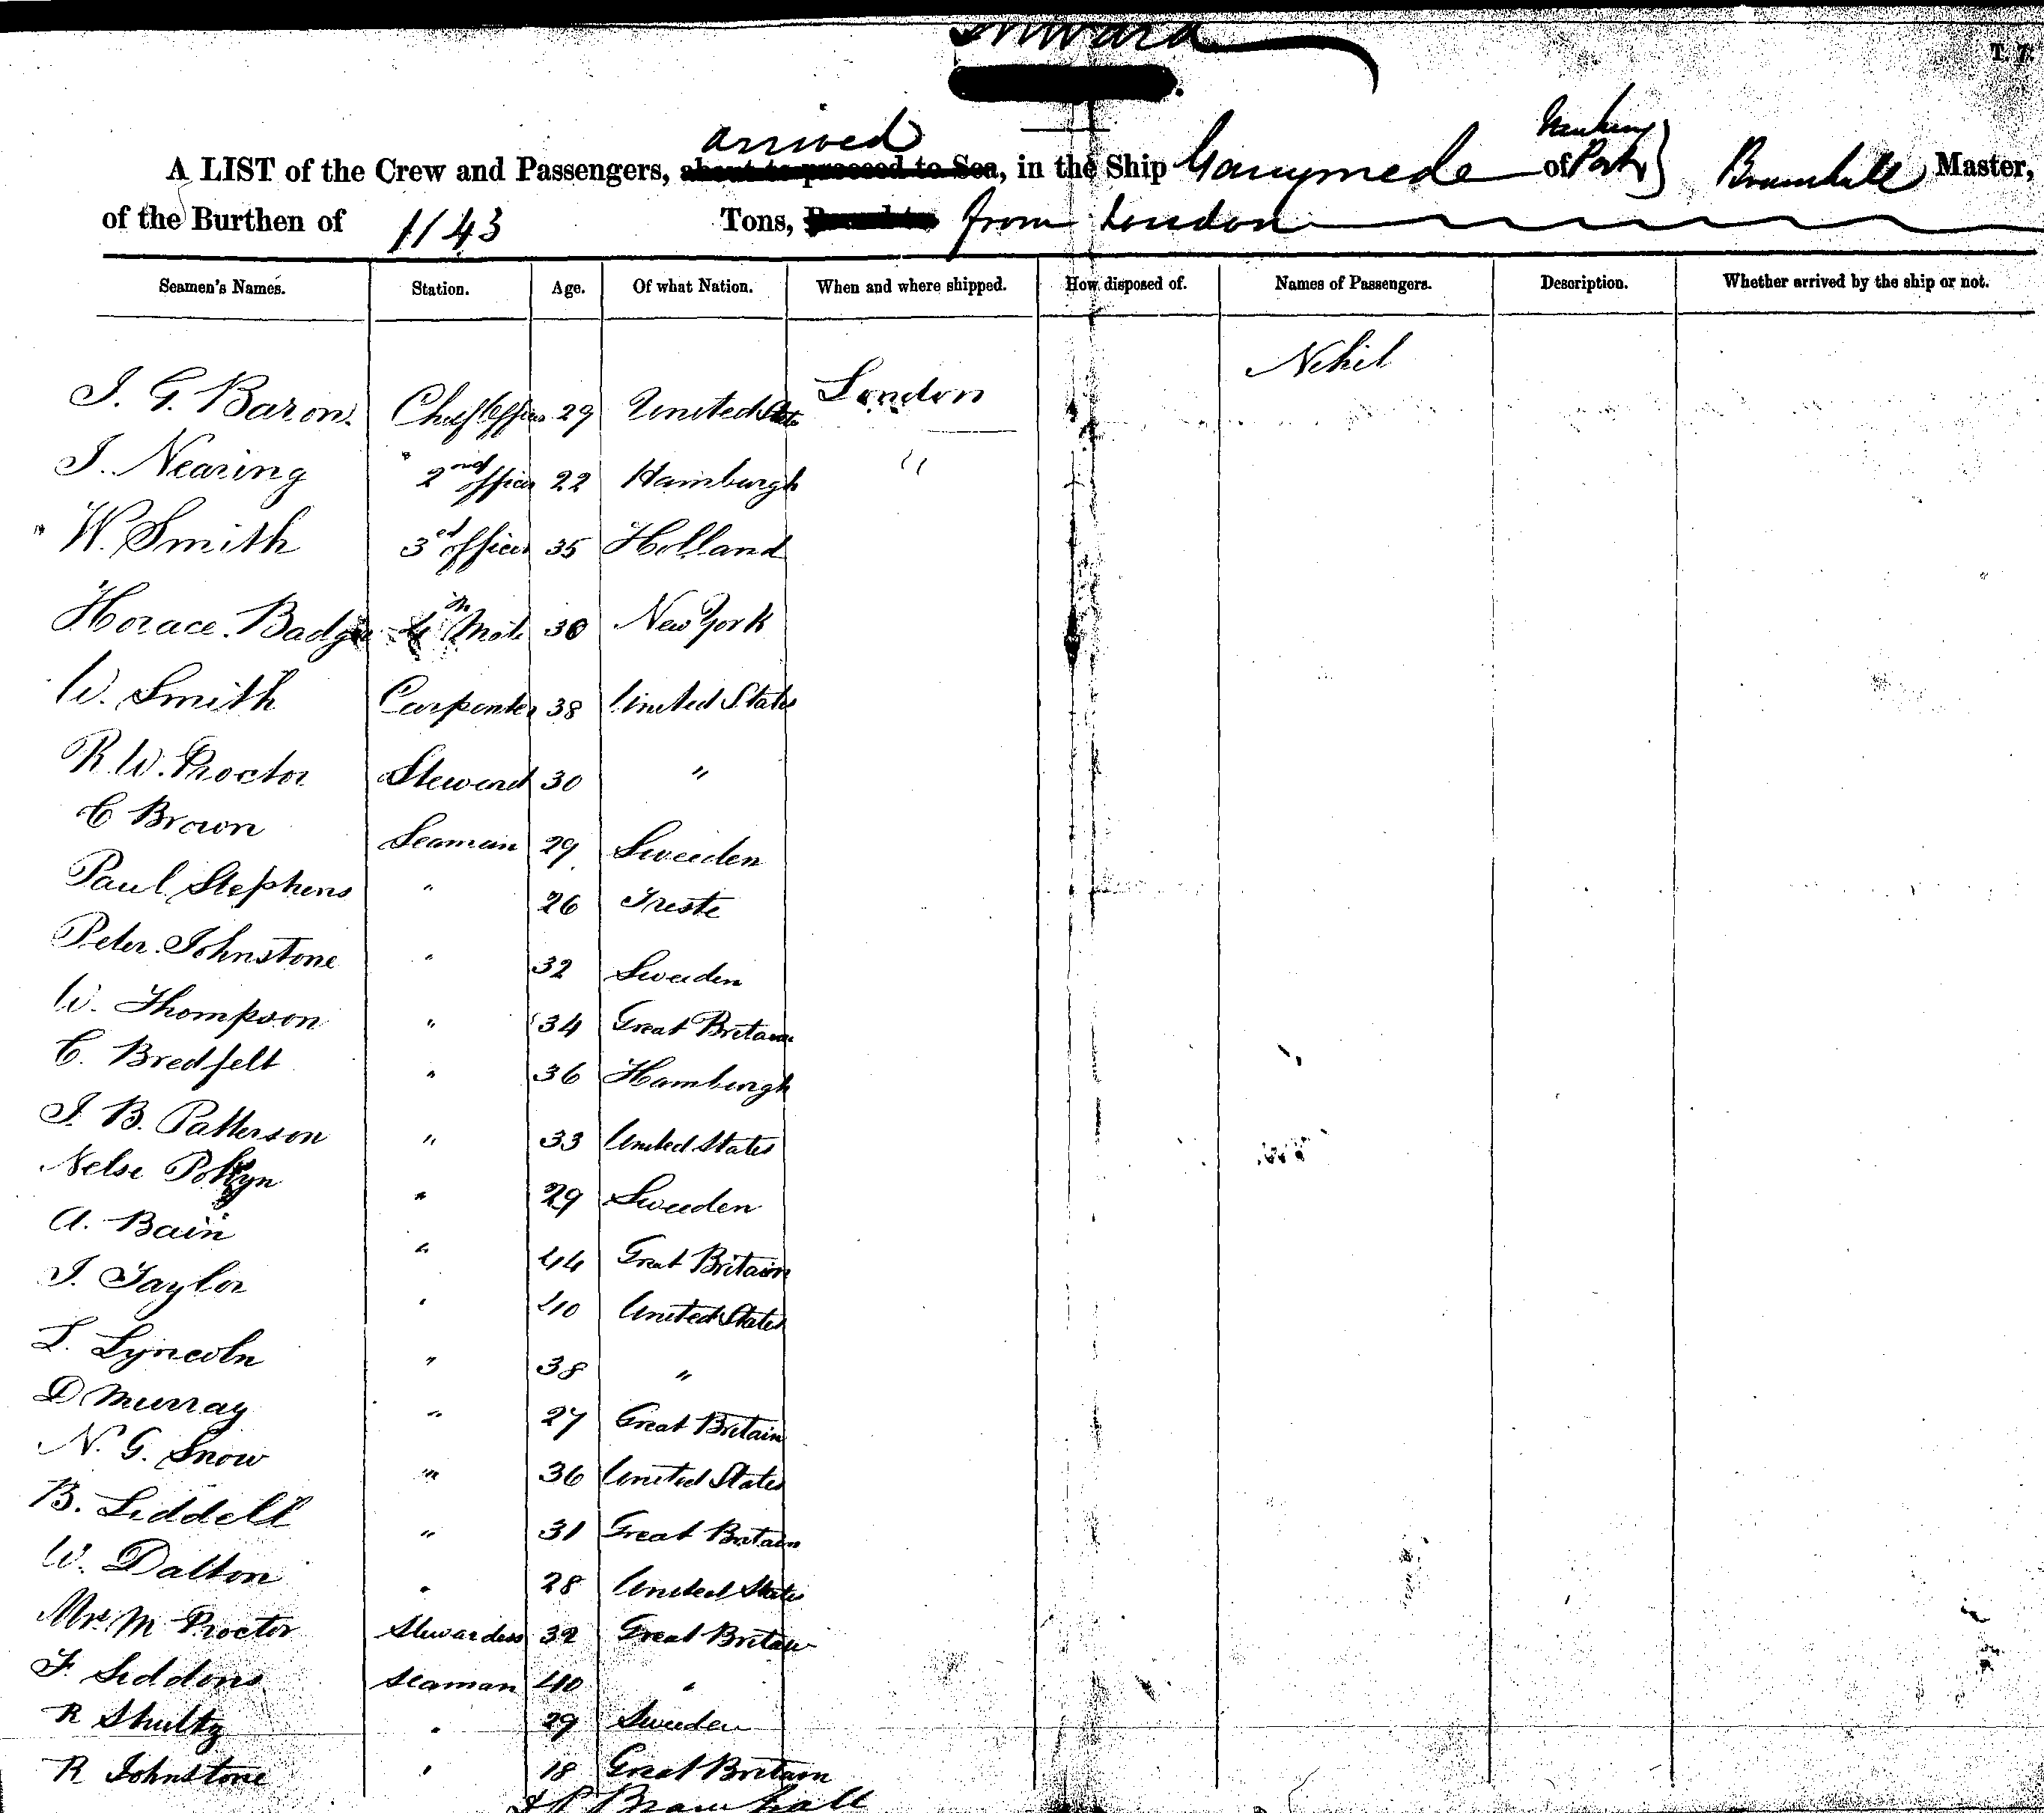 Inward
T. T.
arrived
A LIST of the Crew and Passengers, about to proceed to Sea, in the Ship Ganymede of Bramhall Master,
of the Burthen of 1143 Tons, Bound to from London
Seamen's Names. Station. Age. Of what Nation. When and where shipped. How disposed of. Names of Passengers. Description. Whether arrived by the ship or not.
J. G. Baron Chief Officer 29 United States London Nihil
J. Nearing 2nd officer 22 Hamburgh "
W. Smith 3rd officer 35 Holland
Horace Badger 4th Mate 30 New York
W. Smith Carpenter 38 United States
R. W. Proctor Steward 30 "
C Brown Seaman 29 Sweeden
Paul Stephens " 26 Treste
Peter Johnstone " 32 Sweeden
W. Thompson " 34 Great Britain
C. Bredfelt " 36 Hamburgh
J. B. Patterson " 33 United States
Nelse " 29 Sweeden
A. Bain " 44 Great Britain
J. Taylor " 40 United States
L. Lyncoln " 38 "
D Murray " 27 Great Britain
N. G. Snow " 36 United States
B. Liddell " 31 Great Britain
W. Dalton " 28 United States
Mrs M Proctor Stewardess 32 Great Britain
F. Siddons Seaman 40 "
R Shultz " 29 Sweeden
R Johnstone " 18 Great Britain
Bramhall